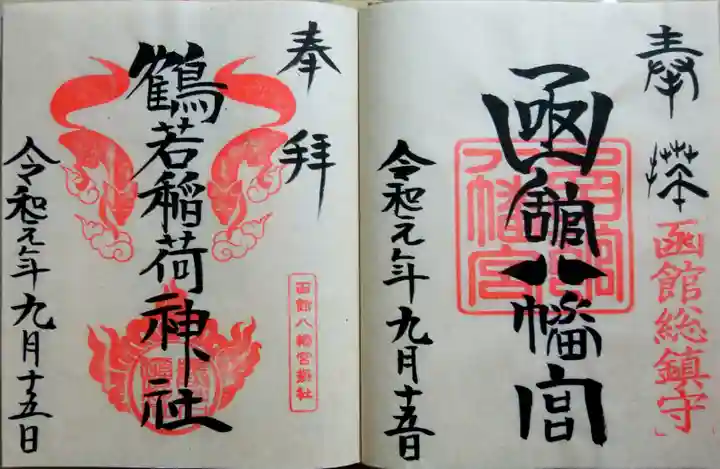 奉拝
函館総鎮守
函館八幡宮
令和元年九月十五日
奉拝
函館八幡宮末社
鶴若稲荷神社
令和元年九月十五日